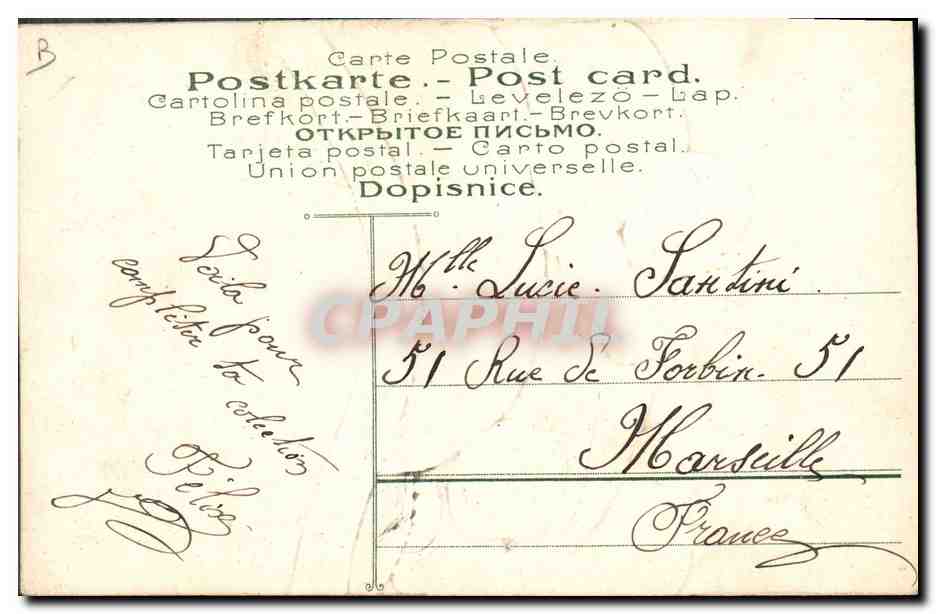 B
Carte Postale.
Postkarte. - Post card.
Cartolina postale. - Levelezō - Lap.
Brefkort. - Briefkaart. - Brevkort.
ОТКРЫТОЕ ПИСЬМО.
Tarjeta postal. - Carto postal.
Union postale universelle.
Dopisnice.
Voila pour
completer ta colection
Félix
Mlle. Lucie. Santini.
51 Rue de Forbin. 51
Marseille
France
CPAPHIL